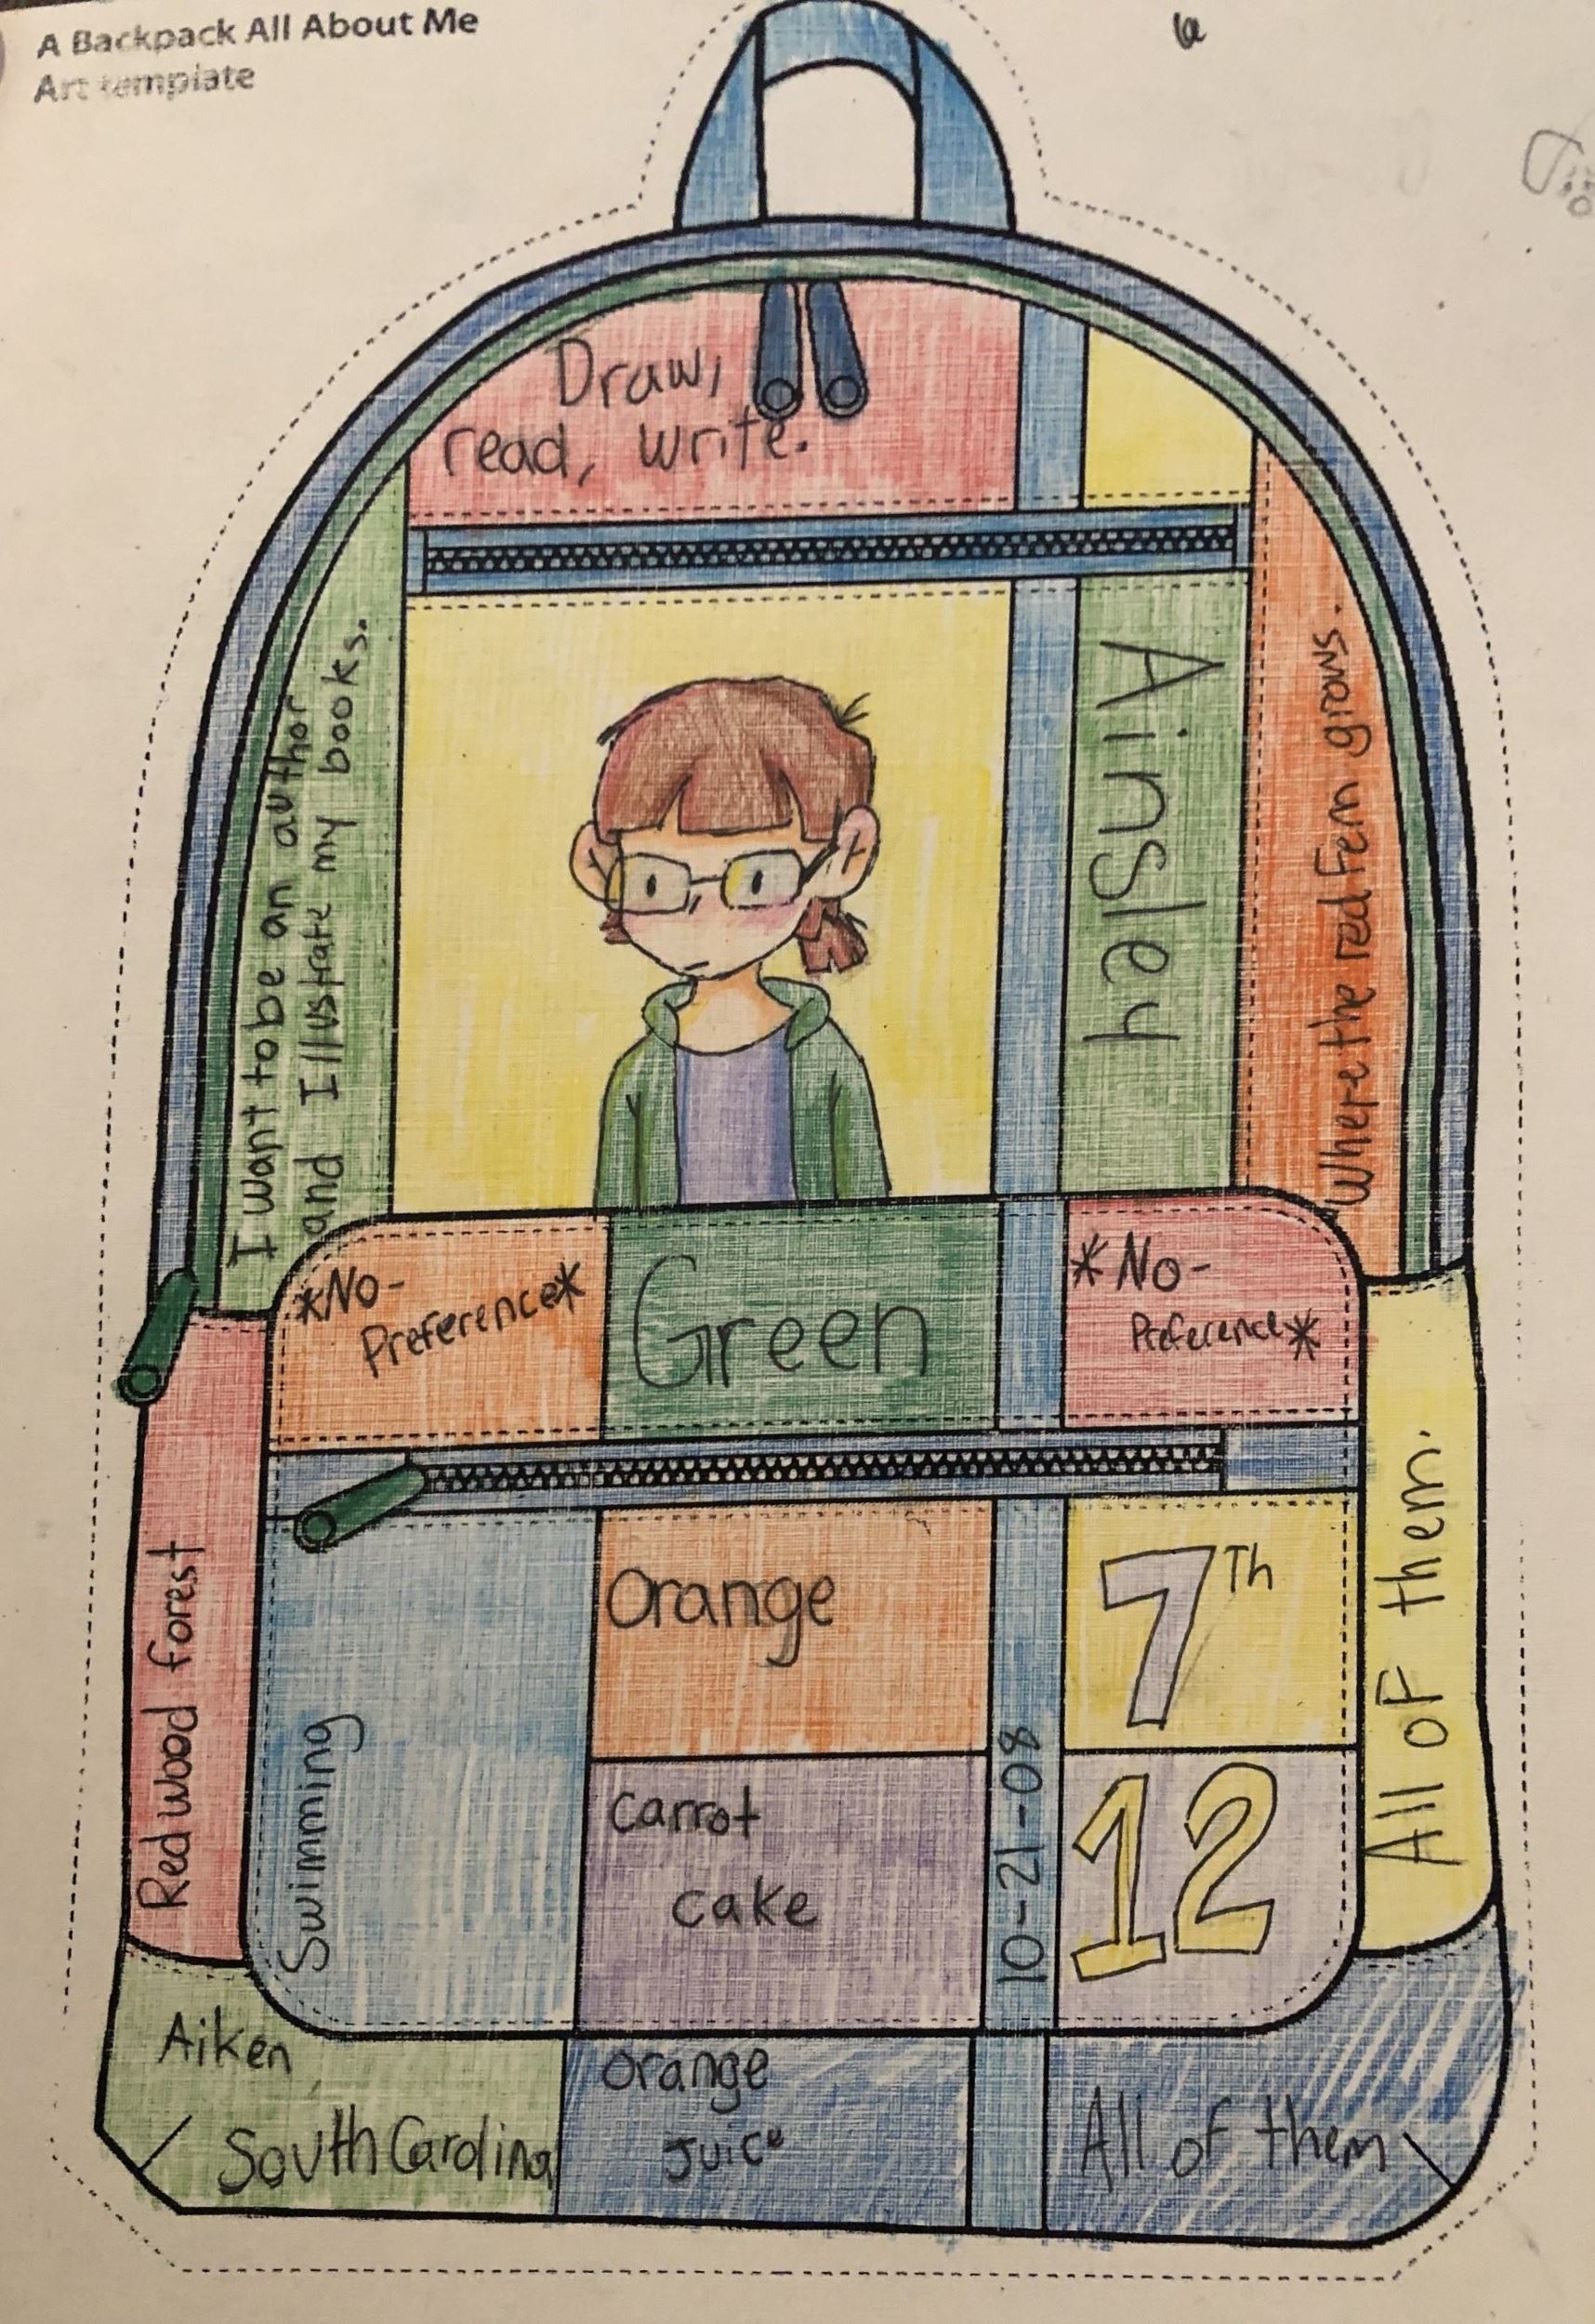 A Backpack All About Me
Art template
Draw,
read, write.
I want to be an author
and Illustrate my books.
Ainsley
"Where the red Fern grows.
*No-
Preference*
Green
*No-
Preference*
Red wood forest
Swimming
Orange
7Th
All oF them.
carrot
cake
10-21-08
12
Aiken
South Carolina
orange
Juice
All of them